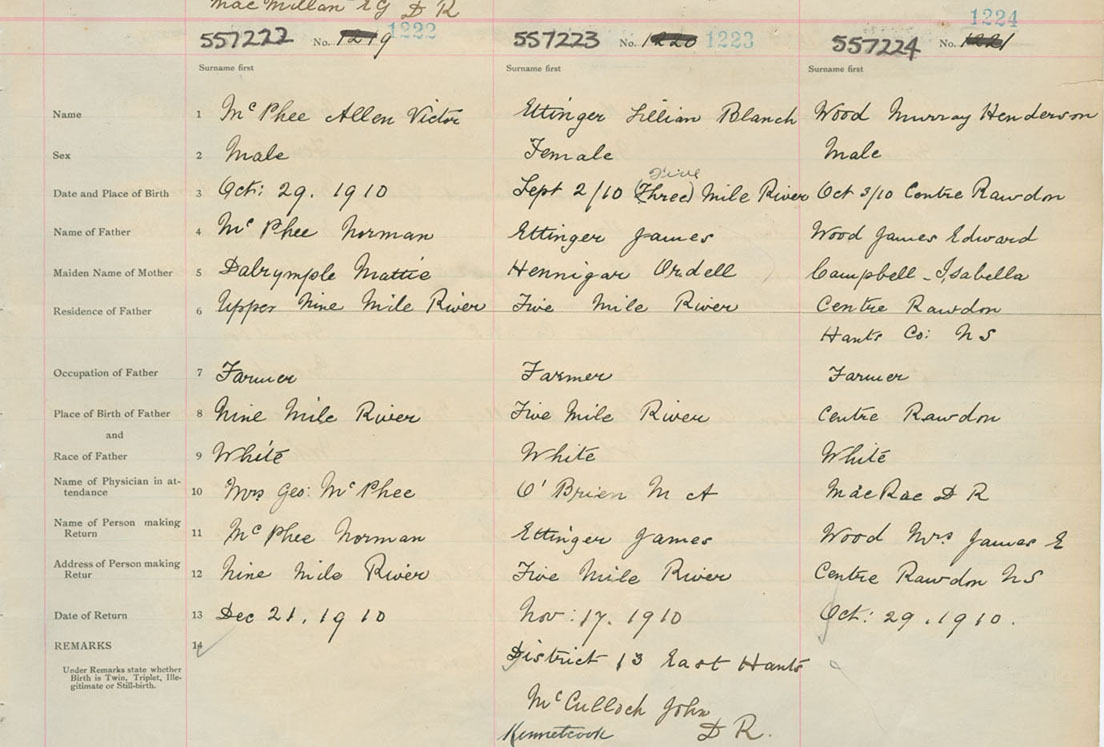 MacMillan E G D R
1224
557222 No. 1219 1222 557223 No. 1220 1223 557224 No. 1221
Surname first Surname first Surname first
Name 1 McPhee Allen Victor Ettinger Lillian Blanch Wood Murray Henderson
Sex 2 Male Female Male
Five
Date and Place of Birth 3 Oct: 29. 1910 Sept 2/10 (Three) Mile River Oct 3/10 Centre Rawdon
Name of Father 4 McPhee Norman Ettinger James Wood James Edward
Maiden Name of Mother 5 Dalrymple Mattie Hennigar Ordell Campbell - Isabella
Residence of Father 6 Upper Nine Mile River Five Mile River Centre Rawdon
Hants Co: NS
Occupation of Father 7 Farmer Farmer Farmer
Place of Birth of Father 8 Nine Mile River Five Mile River Centre Rawdon
and
Race of Father 9 White White White
Name of Physician in at-
tendance 10 Mrs Geo: McPhee O'Brien M A MacRae D R
Name of Person making
Return 11 McPhee Norman Ettinger James Wood Mrs James E
Address of Person making
Retur 12 Nine Mile River Five Mile River Centre Rawdon NS
Date of Return 13 Dec 21. 1910 Nov: 17. 1910 Oct: 29. 1910.
REMARKS 14 District 13 East Hants
Under Remarks state whether
Birth is Twin, Triplet, Ille-
gitimate or Still-birth.
McCulloch John
Kennetcook D R.